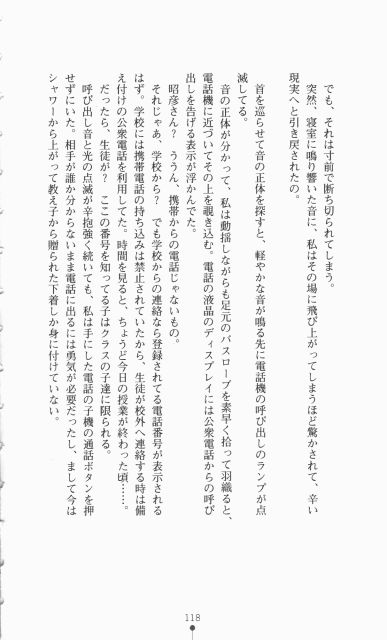 でも、それは寸前で断ち切られてしまう。
突然、寝室に鳴り響いた音に、私はその場に飛び上がってしまうほど驚かされて、辛い
現実へと引き戻されたの。
首を巡らせて音の正体を探すと、軽やかな音が鳴る先に電話機の呼び出しのランプが点
滅してる。
音の正体が分かって、私は動揺しながらも足元のバスローブを素早く拾って羽織ると、
電話機に近づいてその上を覗き込む。電話の液晶のディスプレイには公衆電話からの呼び
出しを告げる表示が浮かんでた。
昭彦さん？　ううん、携帯からの電話じゃないもの。
それじゃあ、学校から？　でも学校からの連絡なら登録されてる電話番号が表示される
はず。学校には携帯電話の持ち込みは禁止されていたから、生徒が校外へ連絡する時は備
え付けの公衆電話を利用してた。時間を見ると、ちょうど今日の授業が終わった頃……。
だったら、生徒が？　ここの番号を知ってる子はクラスの子達に限られる。
呼び出し音と光の点滅が辛抱強く続いても、私は手にした電話の子機の通話ボタンを押
せずにいた。相手が誰か分からないまま電話に出るには勇気が必要だったし、まして今は
シャワーから上がって教え子から贈られた下着しか身に付けていない。
118